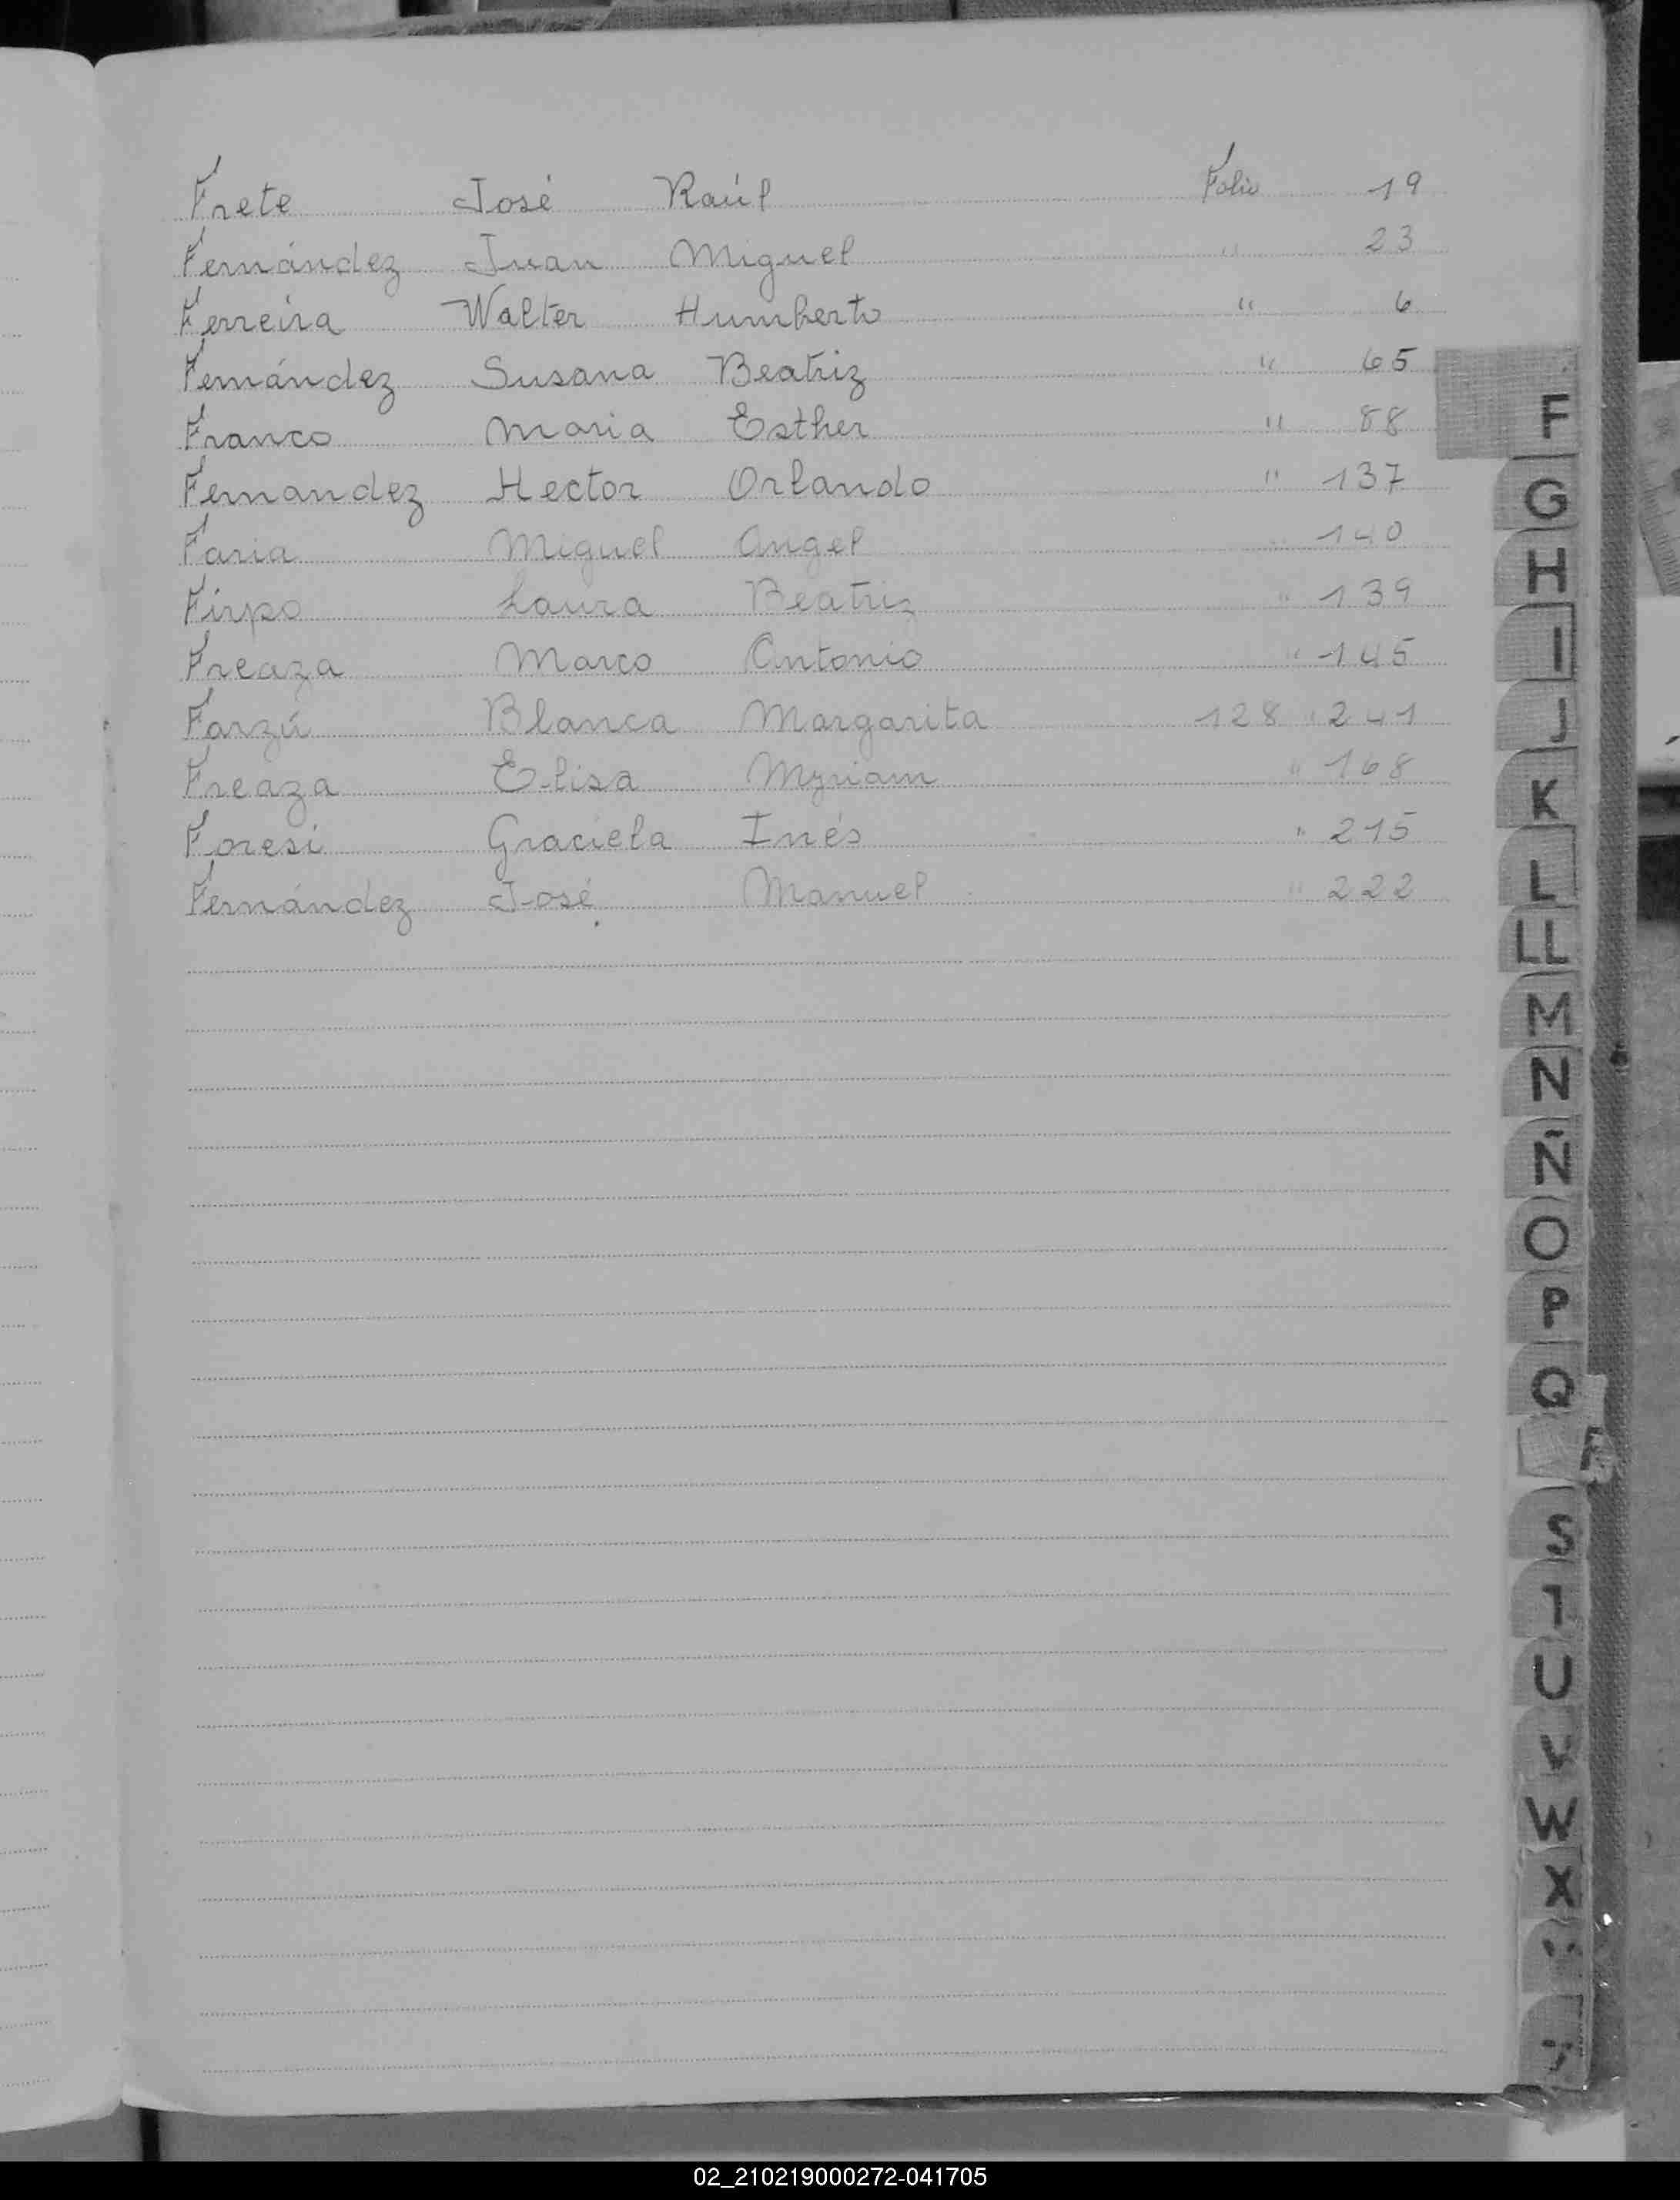 Frete José Raúl Folio 19
Fernández Juan Miguel " 23
Ferreira Walter Humberto " 6
Fernández Susana Beatriz " 65
Franco Maria Esther " 88
Fernandez Hector Orlando " 137
Faria Miguel Angel " 140
Firpo Laura Beatriz " 139
Freaza Marco Antonio " 145
Farzú Blanca Margarita 128 241
Freaza Elisa Myriam " 168
Foresi Graciela Inés " 215
Fernández José Manuel " 222
F
G
H
I
J
K
L
LL
M
N
Ñ
O
P
Q
S
T
U
V
W
X
02_210219000272-041705